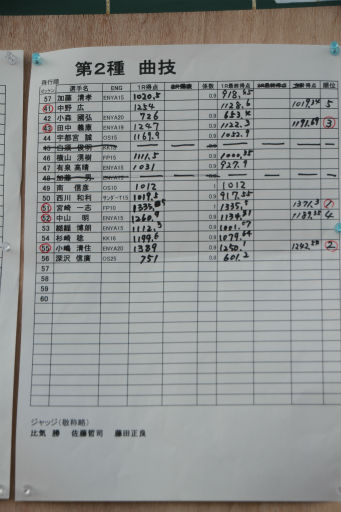 第2種 曲技
飛行順
ゼッケン 選手名 ENG 1R得点 係数 1R最終得点 順位
57 加藤 清孝 ENYA15 1020.5 0.9 918.45
41 中野 広 1254 0.9 1128.6 5
42 小森 國弘 ENYA20 726 0.9
43 田中 義憲 ENYA19 1247 0.9 1122.3 3
44 宇都宮 誠 OS15 1169.9 0.9 1052.9
45 白須 俊明 KK16
46 横山 滉樹 FP15 1111.5 0.9 1000.35
47 有泉 高晴 ENYA15 1031 0.9 927.9
48 加藤 一男
49 南 信彦 OS10 1012 1 1012
50 西川 和利 サンダーT15 1019.5 0.9 917.55
51 宮崎 一志 FP10 1 1335.5 1371.3 1
52 中山 明 ENYA15 0.9 4
53 綾籠 博朗 ENYA15 1112.3 0.9 1001.07
54 杉崎 稔 KK16 0.9
55 小嶋 清住 ENYA20 1389 0.9 1250.1 2
56 深沢 信廣 OS25 751 0.9
58
59
60
ジャッジ(敬称略)
比気 勝 佐藤哲司 藤田正良